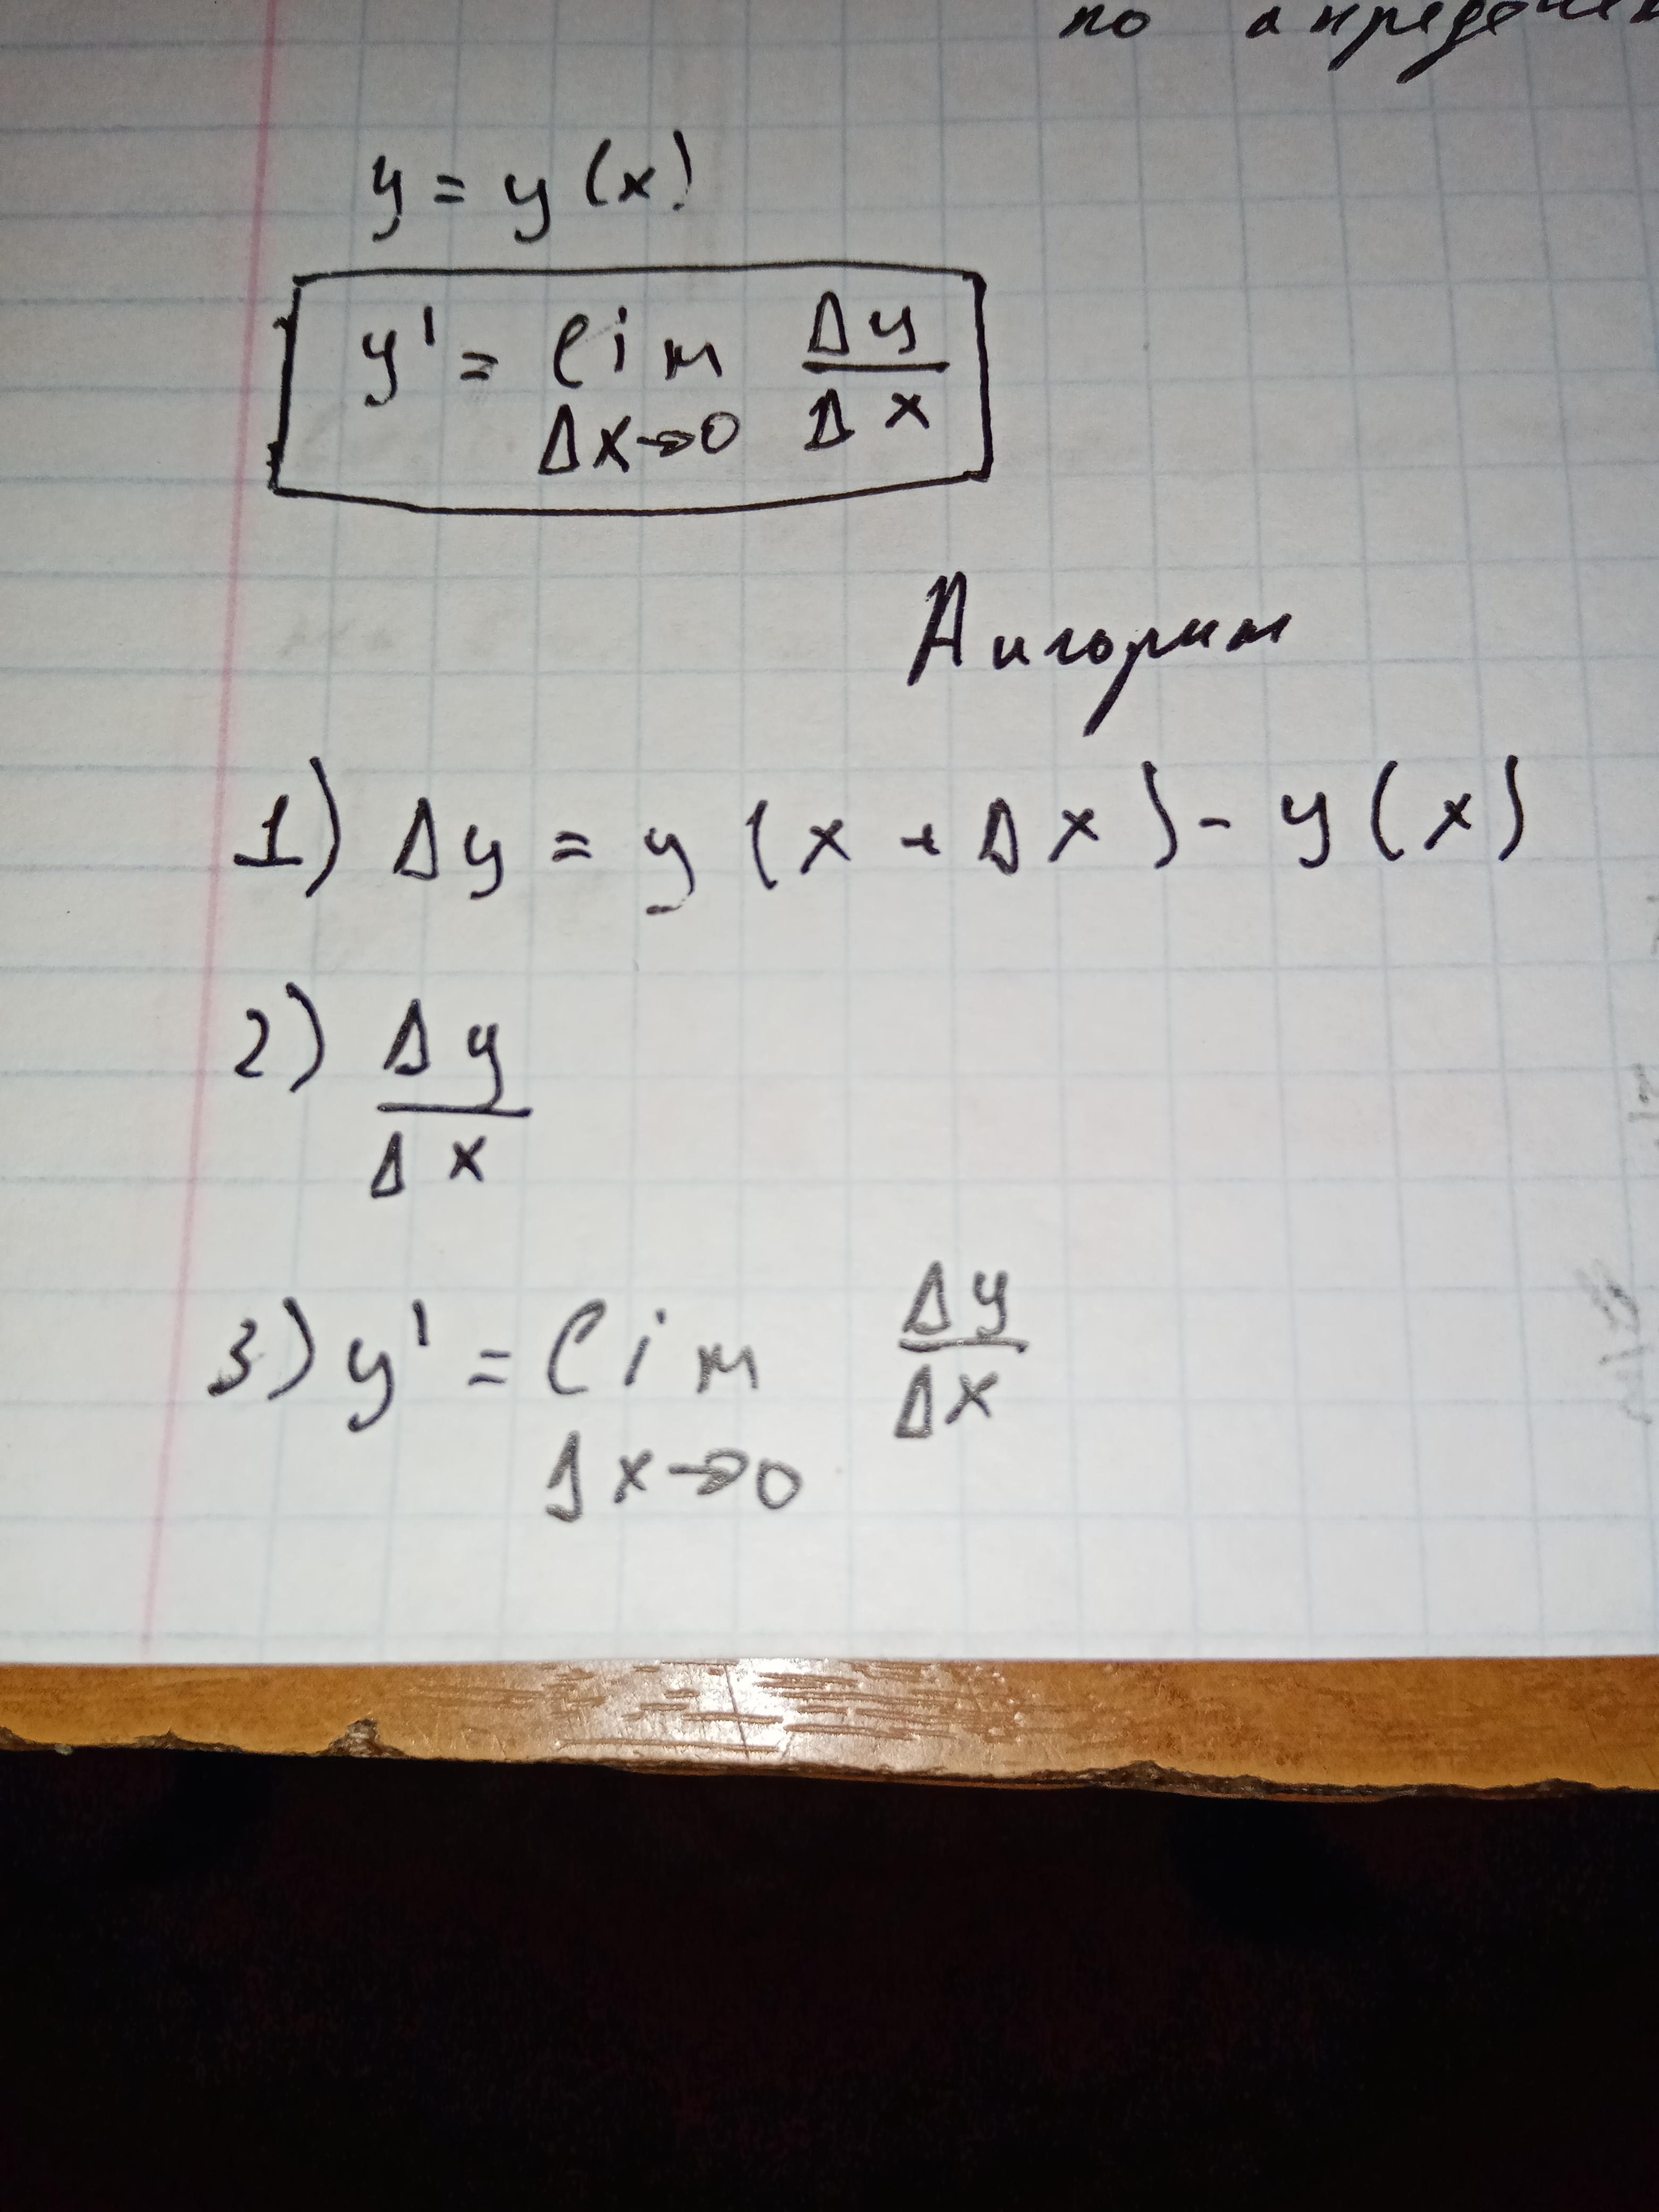 по
y = y(x)
y' = lim Δy/Δx
Δx→0
Алгоритм
1) Δy = y(x + Δx) - y(x)
2) Δy/Δx
3) y' = lim Δy/Δx
Δx→0